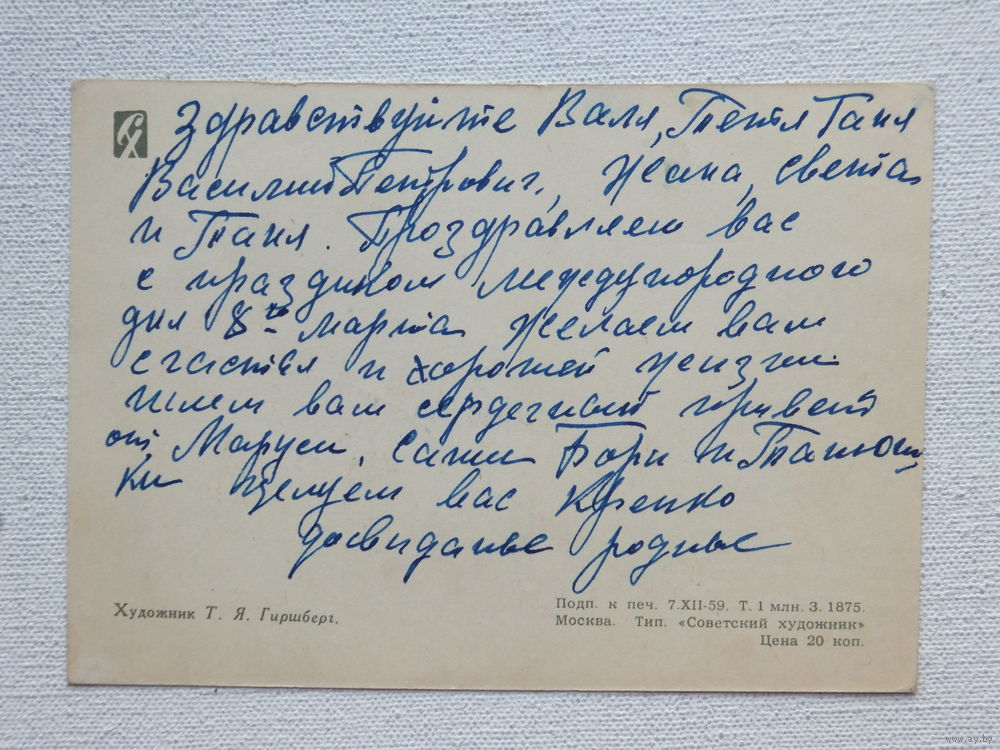 СХ
Здравствуйте Валя, Тетя Ганя
Василий Петрович, Жана, Света
и Таня. Проздравляем вас
с праздником международного
дня 8го марта желаем вам
счастья и хорошей жизни
шлем вам сердечный привет
от Маруси, Саши Бори и Танюш
ки целуем вас крепко
досвиданье родные
Художник Т. Я. Гиршберг.
Подп. к печ. 7.XII-59. Т. 1 млн. З. 1875.
Москва. Тип. «Советский художник»
Цена 20 коп.
www.ay.by